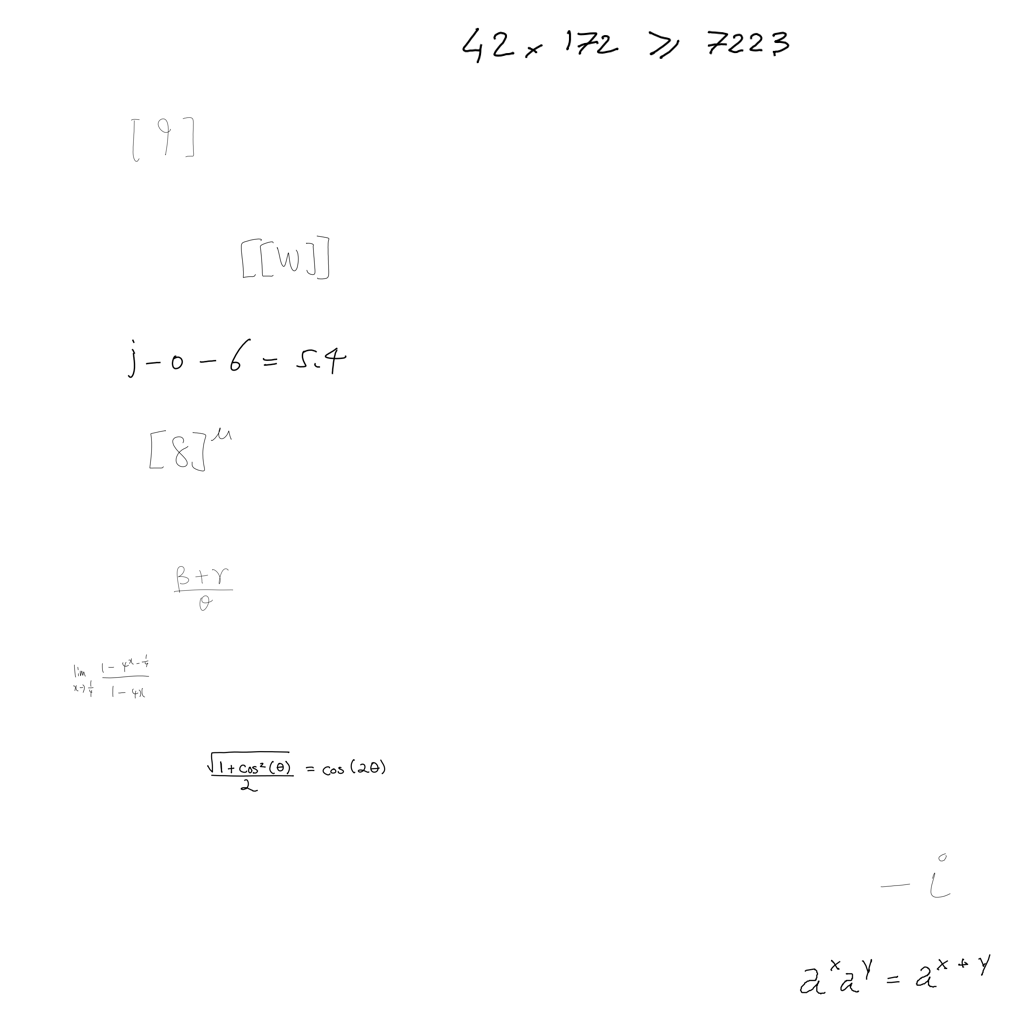 42 × 172 ⩾ 7223
[9]
[[W]]
j - 0 - 6 = 5.4
[8]^μ
\frac{β+γ}{θ}
\lim_{x→\frac{1}{4}} \frac{1-4^{x-\frac{1}{4}}}{1-4x}
\frac{\sqrt{1+cos²(θ)}}{2} = cos(2θ)
- i
a^x a^y = a^{x+y}